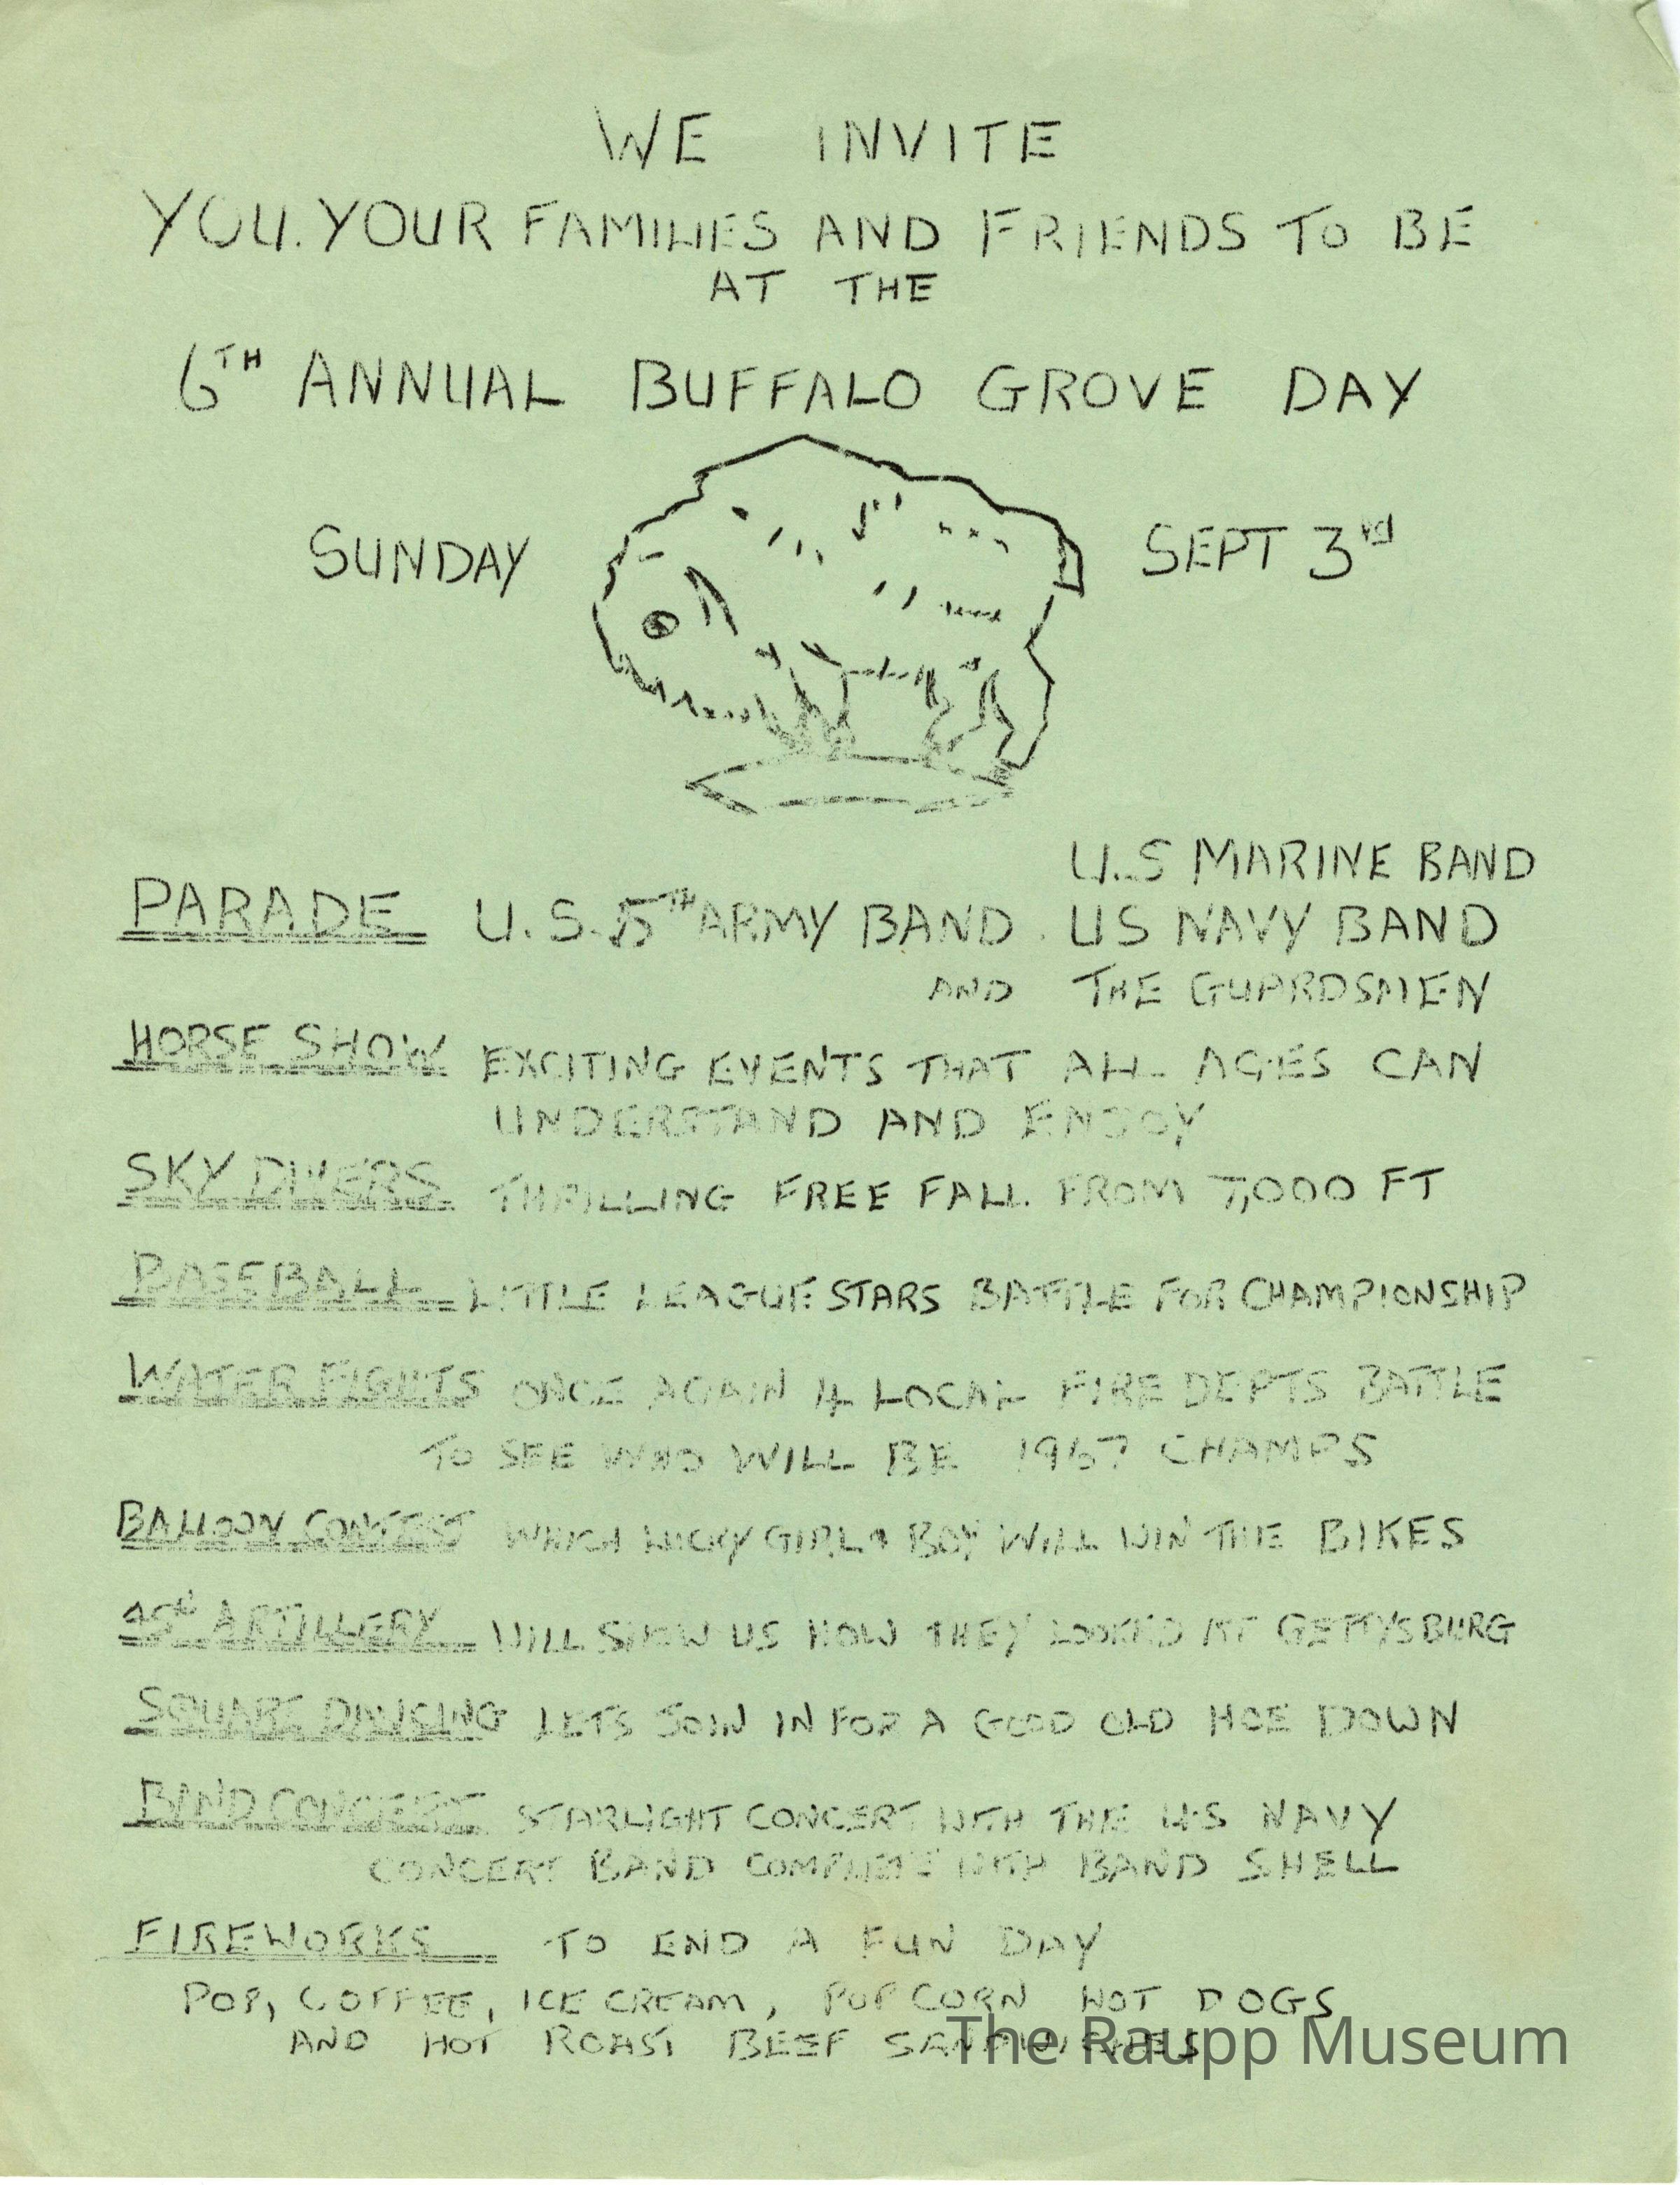 WE INVITE
YOU. YOUR FAMILIES AND FRIENDS TO BE
AT THE
6TH ANNUAL BUFFALO GROVE DAY
SUNDAY SEPT 3rd
U.S MARINE BAND
PARADE U.S. 5TH ARMY BAND. US NAVY BAND
AND THE GUARDSMEN
HORSE SHOW EXCITING EVENTS THAT ALL AGES CAN
UNDERSTAND AND ENJOY
SKY DIVERS THRILLING FREE FALL FROM 7,000 FT
BASEBALL LITTLE LEAGUE STARS BATTLE FOR CHAMPIONSHIP
WATER FIGHTS ONCE AGAIN 4 LOCAL FIRE DEPTS BATTLE
TO SEE WHO WILL BE 1967 CHAMPS
BALLOON CONTEST WHICH LUCKY GIRL & BOY WILL WIN THE BIKES
ARTILLERY WILL SHOW US HOW THEY LOOKED AT GETTYSBURG
SQUARE DANCING LETS JOIN IN FOR A GOOD OLD HOE DOWN
BAND CONCERT STARLIGHT CONCERT WITH THE U.S NAVY
CONCERT BAND COMPLETE WITH BAND SHELL
FIREWORKS TO END A FUN DAY
POP, COFFEE, ICE CREAM, POP CORN HOT DOGS
AND HOT ROAST BEEF SANDWICHES
The Raupp Museum